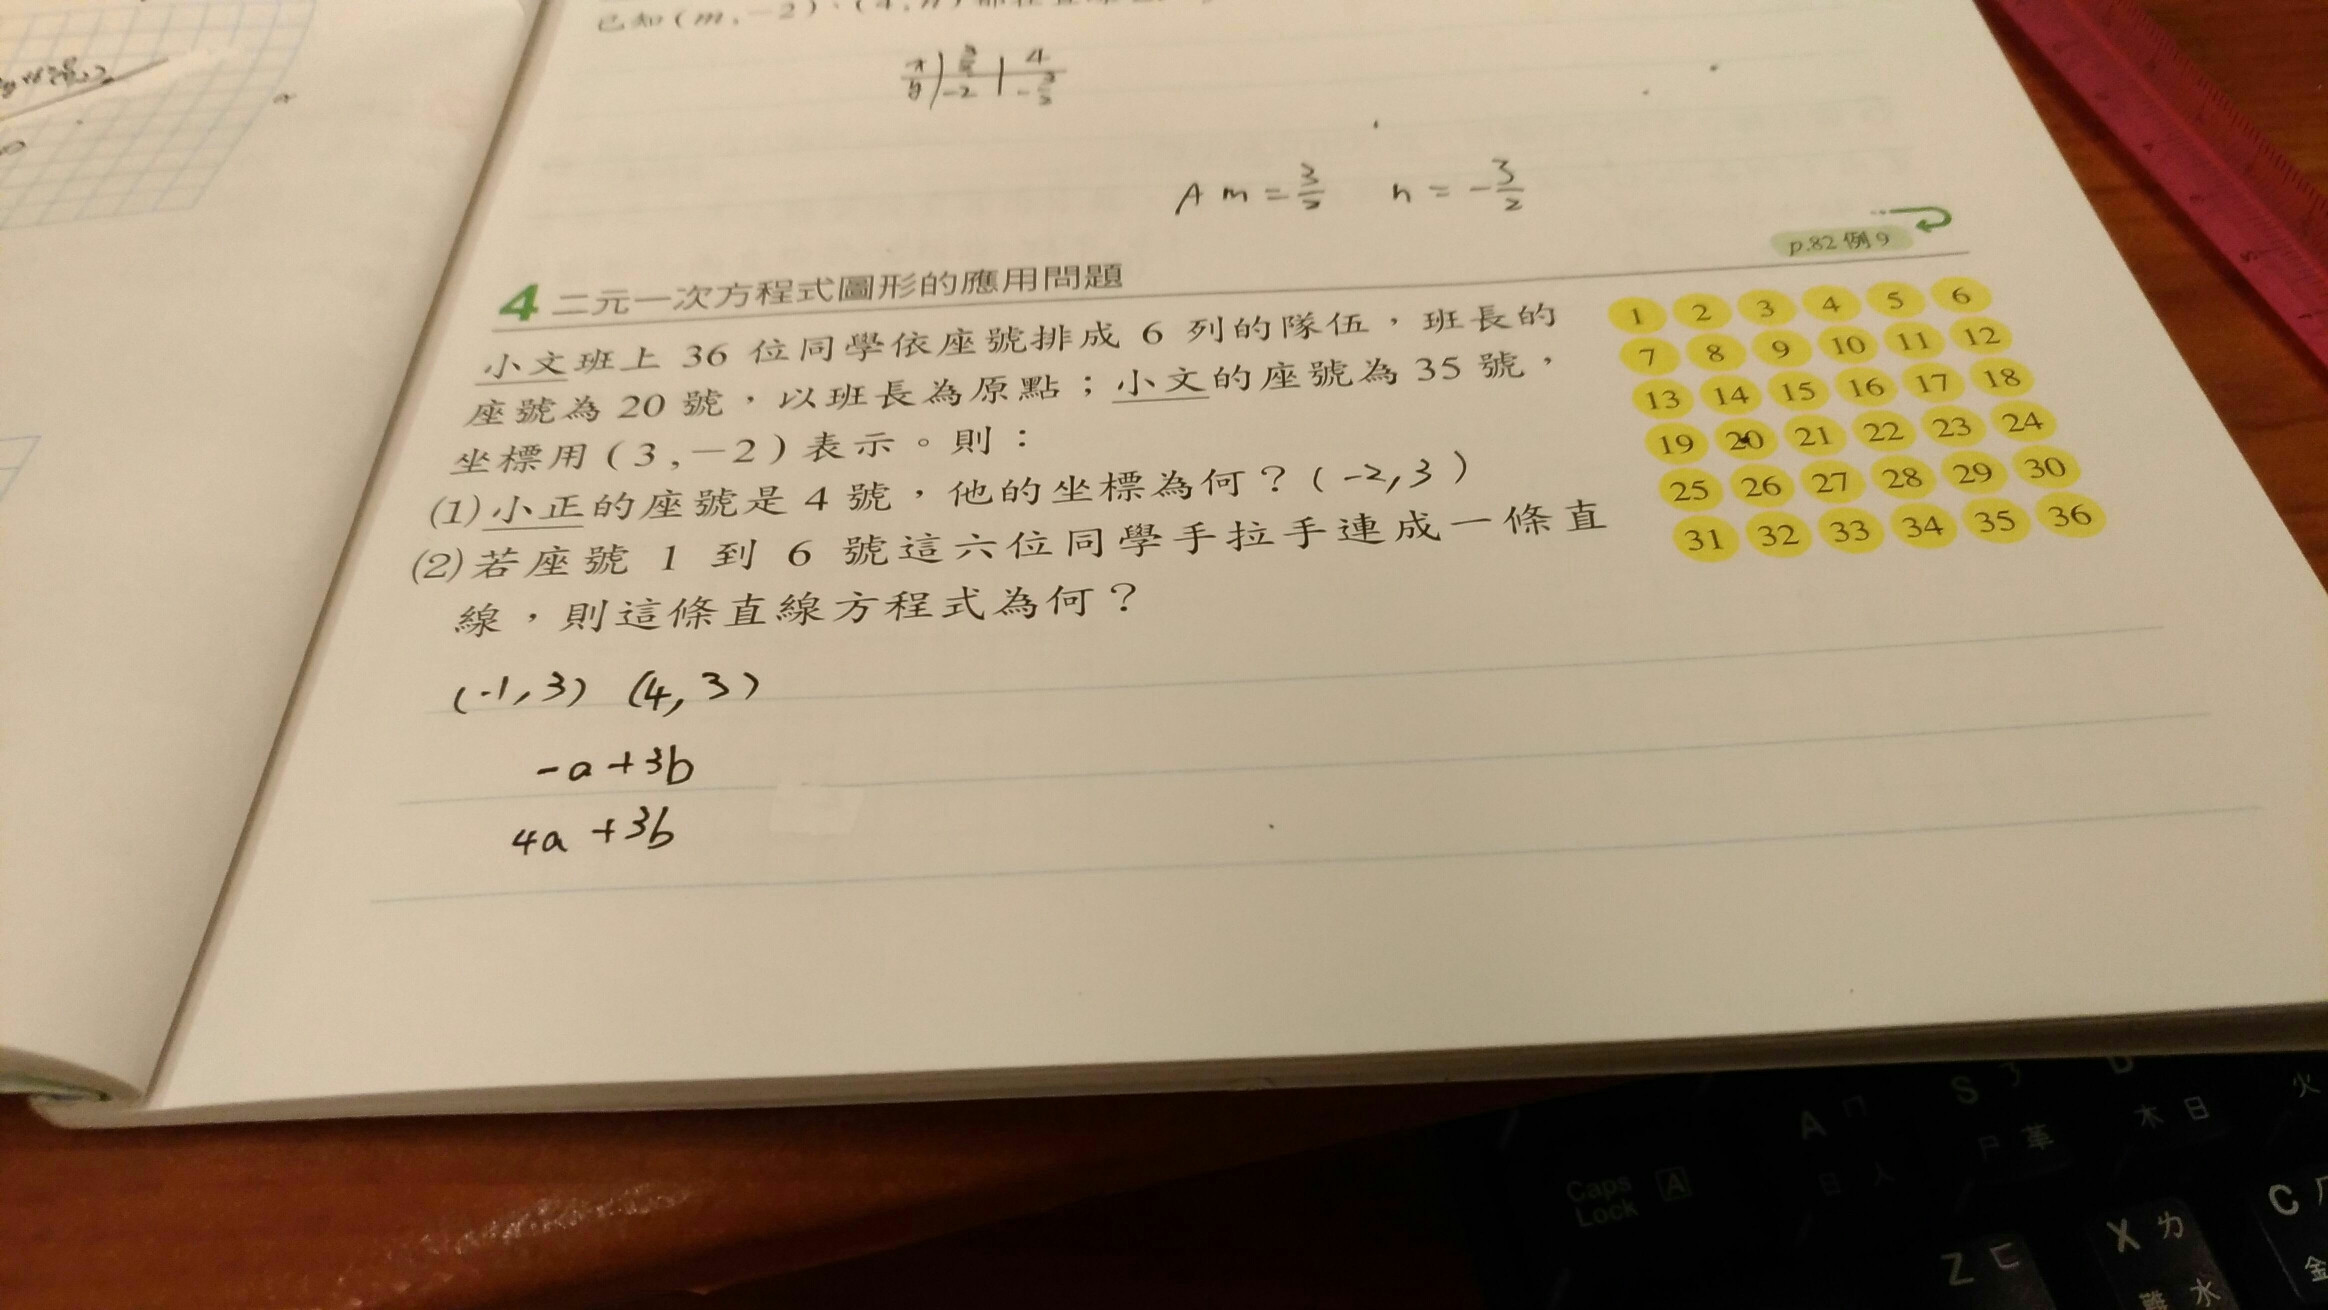 已知(m,-2)、(4,n)
x 3/2 4
y -2 -3/2
A m=3/2 n=-3/2
p.82 例9
4 二元一次方程式圖形的應用問題
小文班上 36 位同學依座號排成 6 列的隊伍，班長的
座號為 20 號，以班長為原點；小文的座號為 35 號，
坐標用(3,-2)表示。則：
(1)小正的座號是 4 號，他的坐標為何？(-2,3)
(2)若座號 1 到 6 號這六位同學手拉手連成一條直
線，則這條直線方程式為何？
1 2 3 4 5 6
7 8 9 10 11 12
13 14 15 16 17 18
19 20 21 22 23 24
25 26 27 28 29 30
31 32 33 34 35 36
(-1,3) (4,3)
-a+3b
4a+3b
Caps Lock A
A ㄇ 日 人
S ㄋ 尸 革
D 木 日
火
Z ㄈ
X ㄌ 難 水
C ㄏ 金